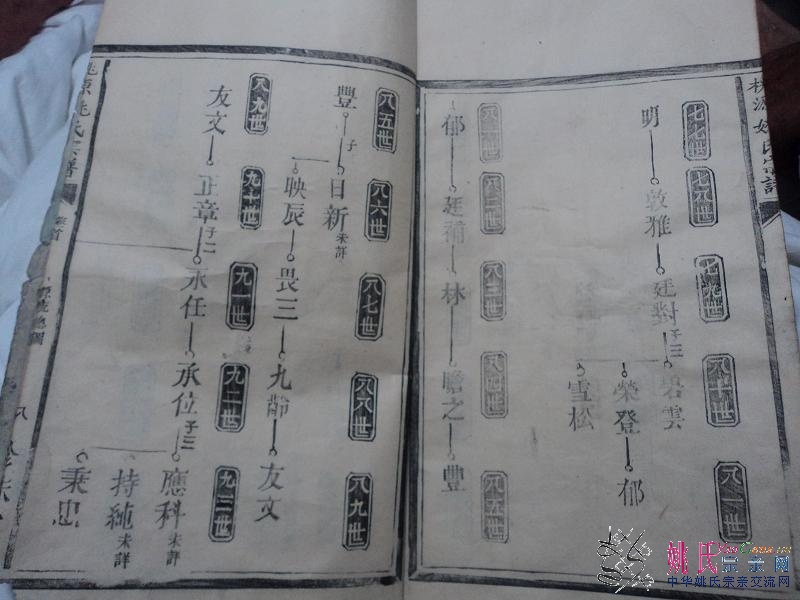 七七世
七八世
七九世
八十世
八一世
明
敦雅
廷對子三
碧雲
榮登
郁
雪松
八二世
八三世
八四世
八五世
郁
廷補
林
瞻之
豐
八五世
八六世
八七世
八八世
八九世
豐
子
日新未詳
映辰
畏三
九齡
友文
八九世
九十世
九一世
九二世
九三世
友文
正章子二
永任
承位子三
應科未詳
持純未詳
秉忠
姚氏
宗亲网
中华姚氏宗亲交流网